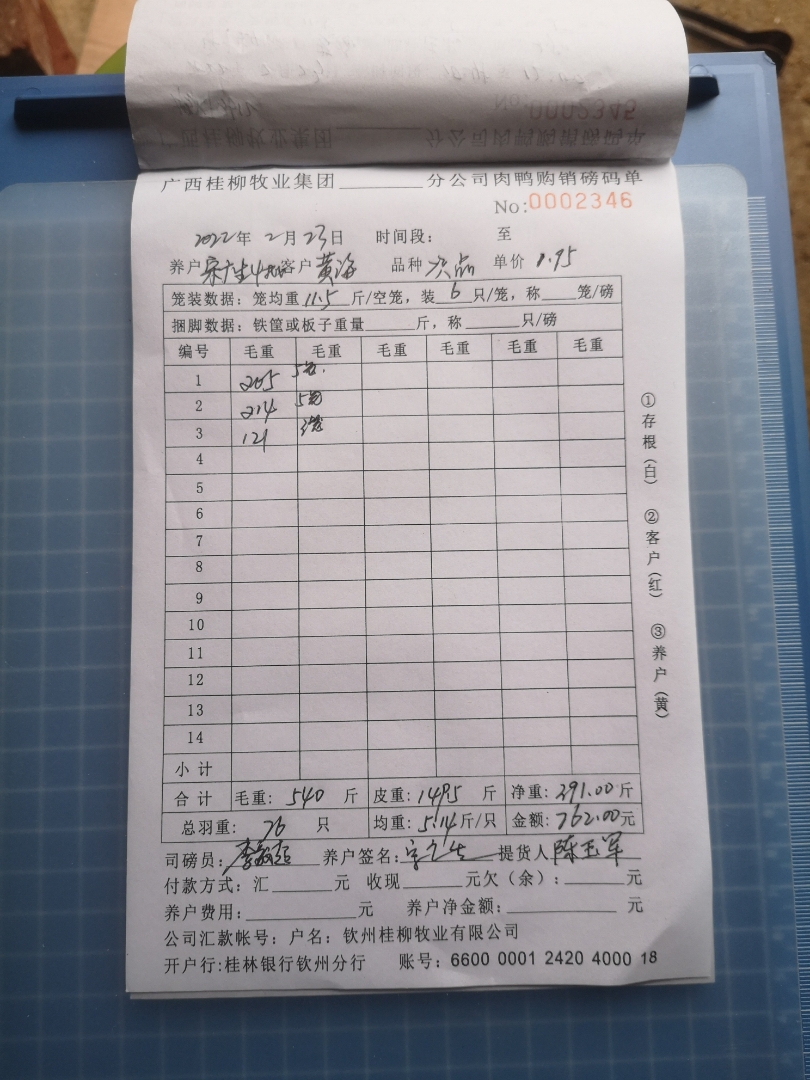 广西桂柳牧业集团________分公司肉鸭购销磅码单
No:0002346
2022年 2月 23日 时间段: 至
养户 客户 黄海 品种 次品 单价 1.95
笼装数据: 笼均重 11.5 斤/空笼, 装 6 只/笼, 称____笼/磅
捆脚数据: 铁筐或板子重量______斤, 称______只/磅
编号 毛重 毛重 毛重 毛重 毛重 毛重
1 205 5笼.
2 214 5笼
3 121 3笼
4
5
6
7
8
9
10
11
12
13
14
小计
合计 毛重: 540 斤 皮重: 149.5 斤 净重: 391.00斤
总羽重: 76 只 均重: 5.14斤/只 金额: 762.00元
司磅员: 养户签名: 提货人 陈玉军
付款方式: 汇______元 收现______元欠(余): ______元
养户费用: __________元 养户净金额: __________元
公司汇款帐号: 户名: 钦州桂柳牧业有限公司
开户行:桂林银行钦州分行 账号: 6600 0001 2420 4000 18
①存根(白) ②客户(红) ③养户(黄)